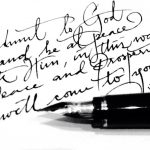 Submit to God
and be at peace
with Him, in this way
Peace and Prosperity
will come to you